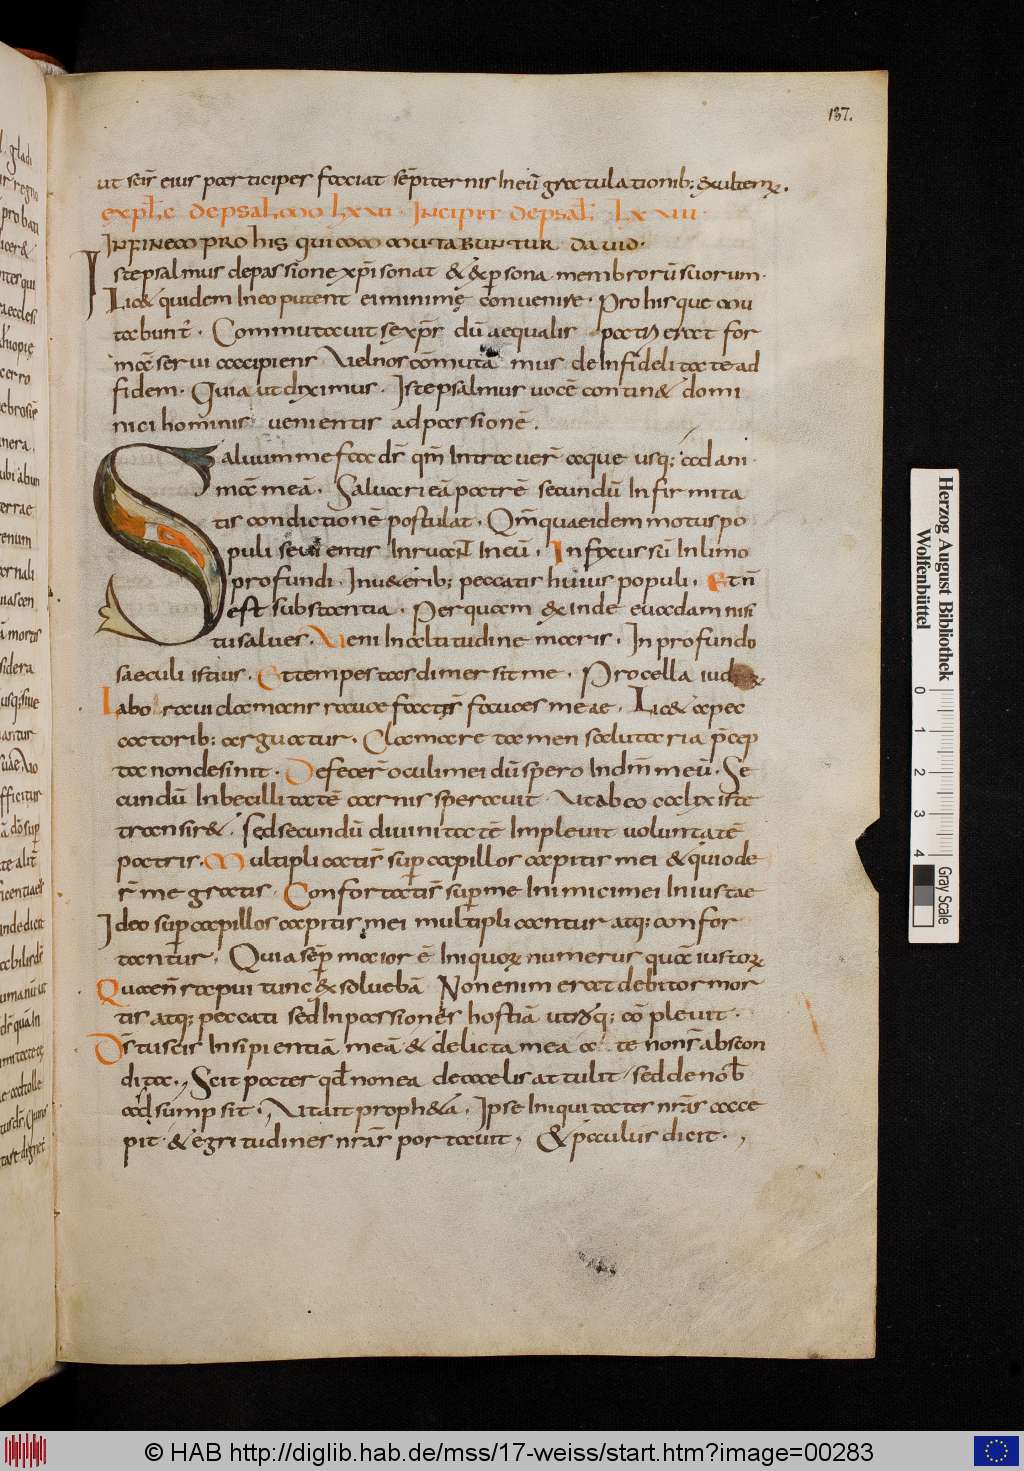 137.
ut scīs eius participes faciat sēpiternis In eū gratulationib; &xultemꝰ.
expl̄c de psalmo lxxii. Incipit de psal̄ Lxviii.
IN FINEM PRO his qui commutabuntur david.
Iste psalmus de passione xp̄i sonat & ex p̄sona membrorū suorum.
Lic& quidem In eo putent ei minime convenire. Pro his que mu
tabunt̄. Commutavit se xp̄s dū aequalis patri erat for
mā servi accipiens Vel nos cōmuta mus de Infidelitate ad
fidem. Quia ut diximus. Iste psalmus vocē contin& domi
nici hominis venientis ad passionē.
Salvum me fac ds̄ qm̄ Intraver̄ aque usq; ad ani
mā meā. Salvari eā patrē secundū Infirmita
tis condictionē postulat. Qm̄ quae eidem motus po
puli sevientis Inruat In eū. Infixus sū In limo
profundi. In v&erib; peccatis huius populi. Et n̄
est substantia. Per quam exinde evadam nisi
tu salves. Veni In altitudine maris. In profundo
saeculi istius. Et tempestas dimersit me. Procella iud
Laboravi clamans rauce facte s̄ fauces meae. Lic& a pec
catorib; arguatur. Clamare tamen salutaria p̄cep
ta non desinit. Defecer̄ oculi mei dū spero In dm̄ meū. Se
cundū Inbecillitatē carnis speravit. Ut ab eo calix iste
transir&. Sed secundū divinitatē Implevit voluntatē
patris. Multiplicati s̄ sup̄ capillos capitis mei & qui ode
r̄ me gratis. Confortati s̄ sup̄ me Inimici mei Iniustae
Ideo sup̄ capillos capitis mei multiplicantur atq; confor
tantur. Quia sēp̄ maior ē Iniquorꝝ numerus quā iustorꝝ
Quae n̄ rapui tunc exsolvebā Non enim erat debitor mor
tis atq; peccati sed In passiones hostiā utrāq; cōplevit.
Ds̄ tu scis Insipientiā meā & delicta mea a te non s̄ abscon
dita. Scit pater qd̄ non ea de caelis attulit sed de nob̄
adsumpsit. Ut ait proph&a. Ipse Iniquitates nr̄as acce
pit & egritudines nr̄as portavit, & paulus dicit.
© HAB http://diglib.hab.de/mss/17-weiss/start.htm?image=00283
Herzog August Bibliothek
Wolfenbüttel
0 1 2 3 4
Gray Scale